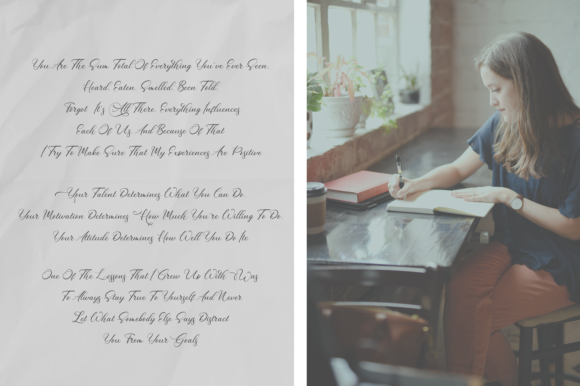 You Are The Sum Total Of Everything You've Ever Seen,
Heard, Eaten, Smelled, Been Told,
Forgot It's All There. Everything Influences
Each Of Us, And Because Of That
I Try To Make Sure That My Experiences Are Positive
Your Talent Determines What You Can Do.
Your Motivation Determines How Much You're Willing To Do.
Your Attitude Determines How Well You Do It.
One Of The Lessons That I Grew Up With Was
To Always Stay True To Yourself And Never
Let What Somebody Else Says Distract
You From Your Goals